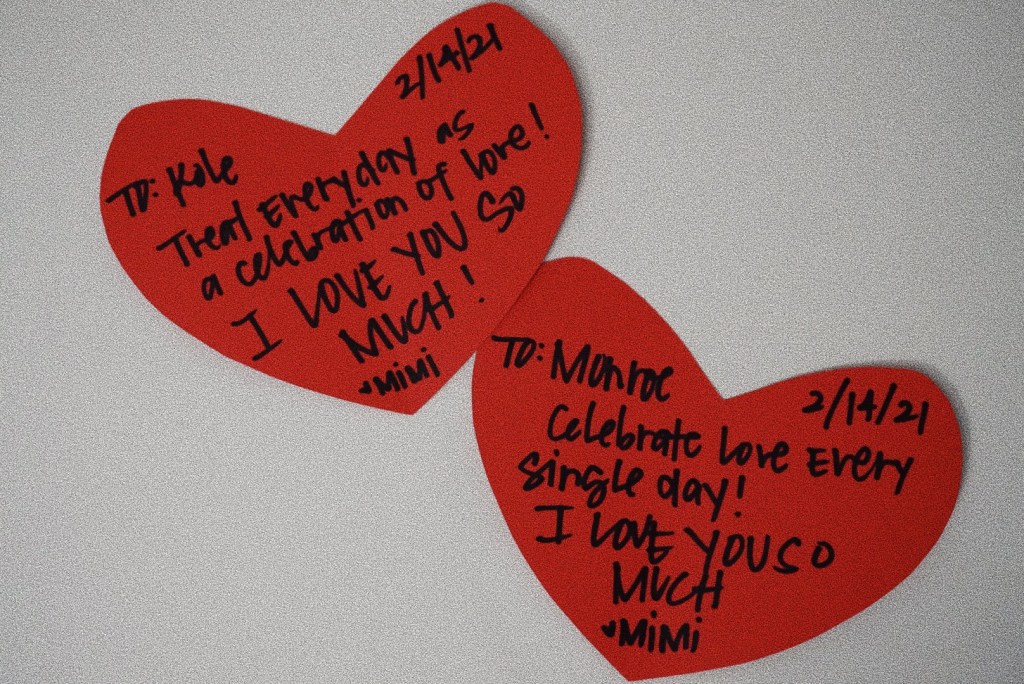 2/14/21
TO: Kole
Treat Everyday as
a celebration of love!
I LOVE YOU SO
MUCH!
♥MiMi
TO: Monroe
2/14/21
Celebrate love Every
Single day!
I LOVE YOU SO
MUCH
♥MiMi